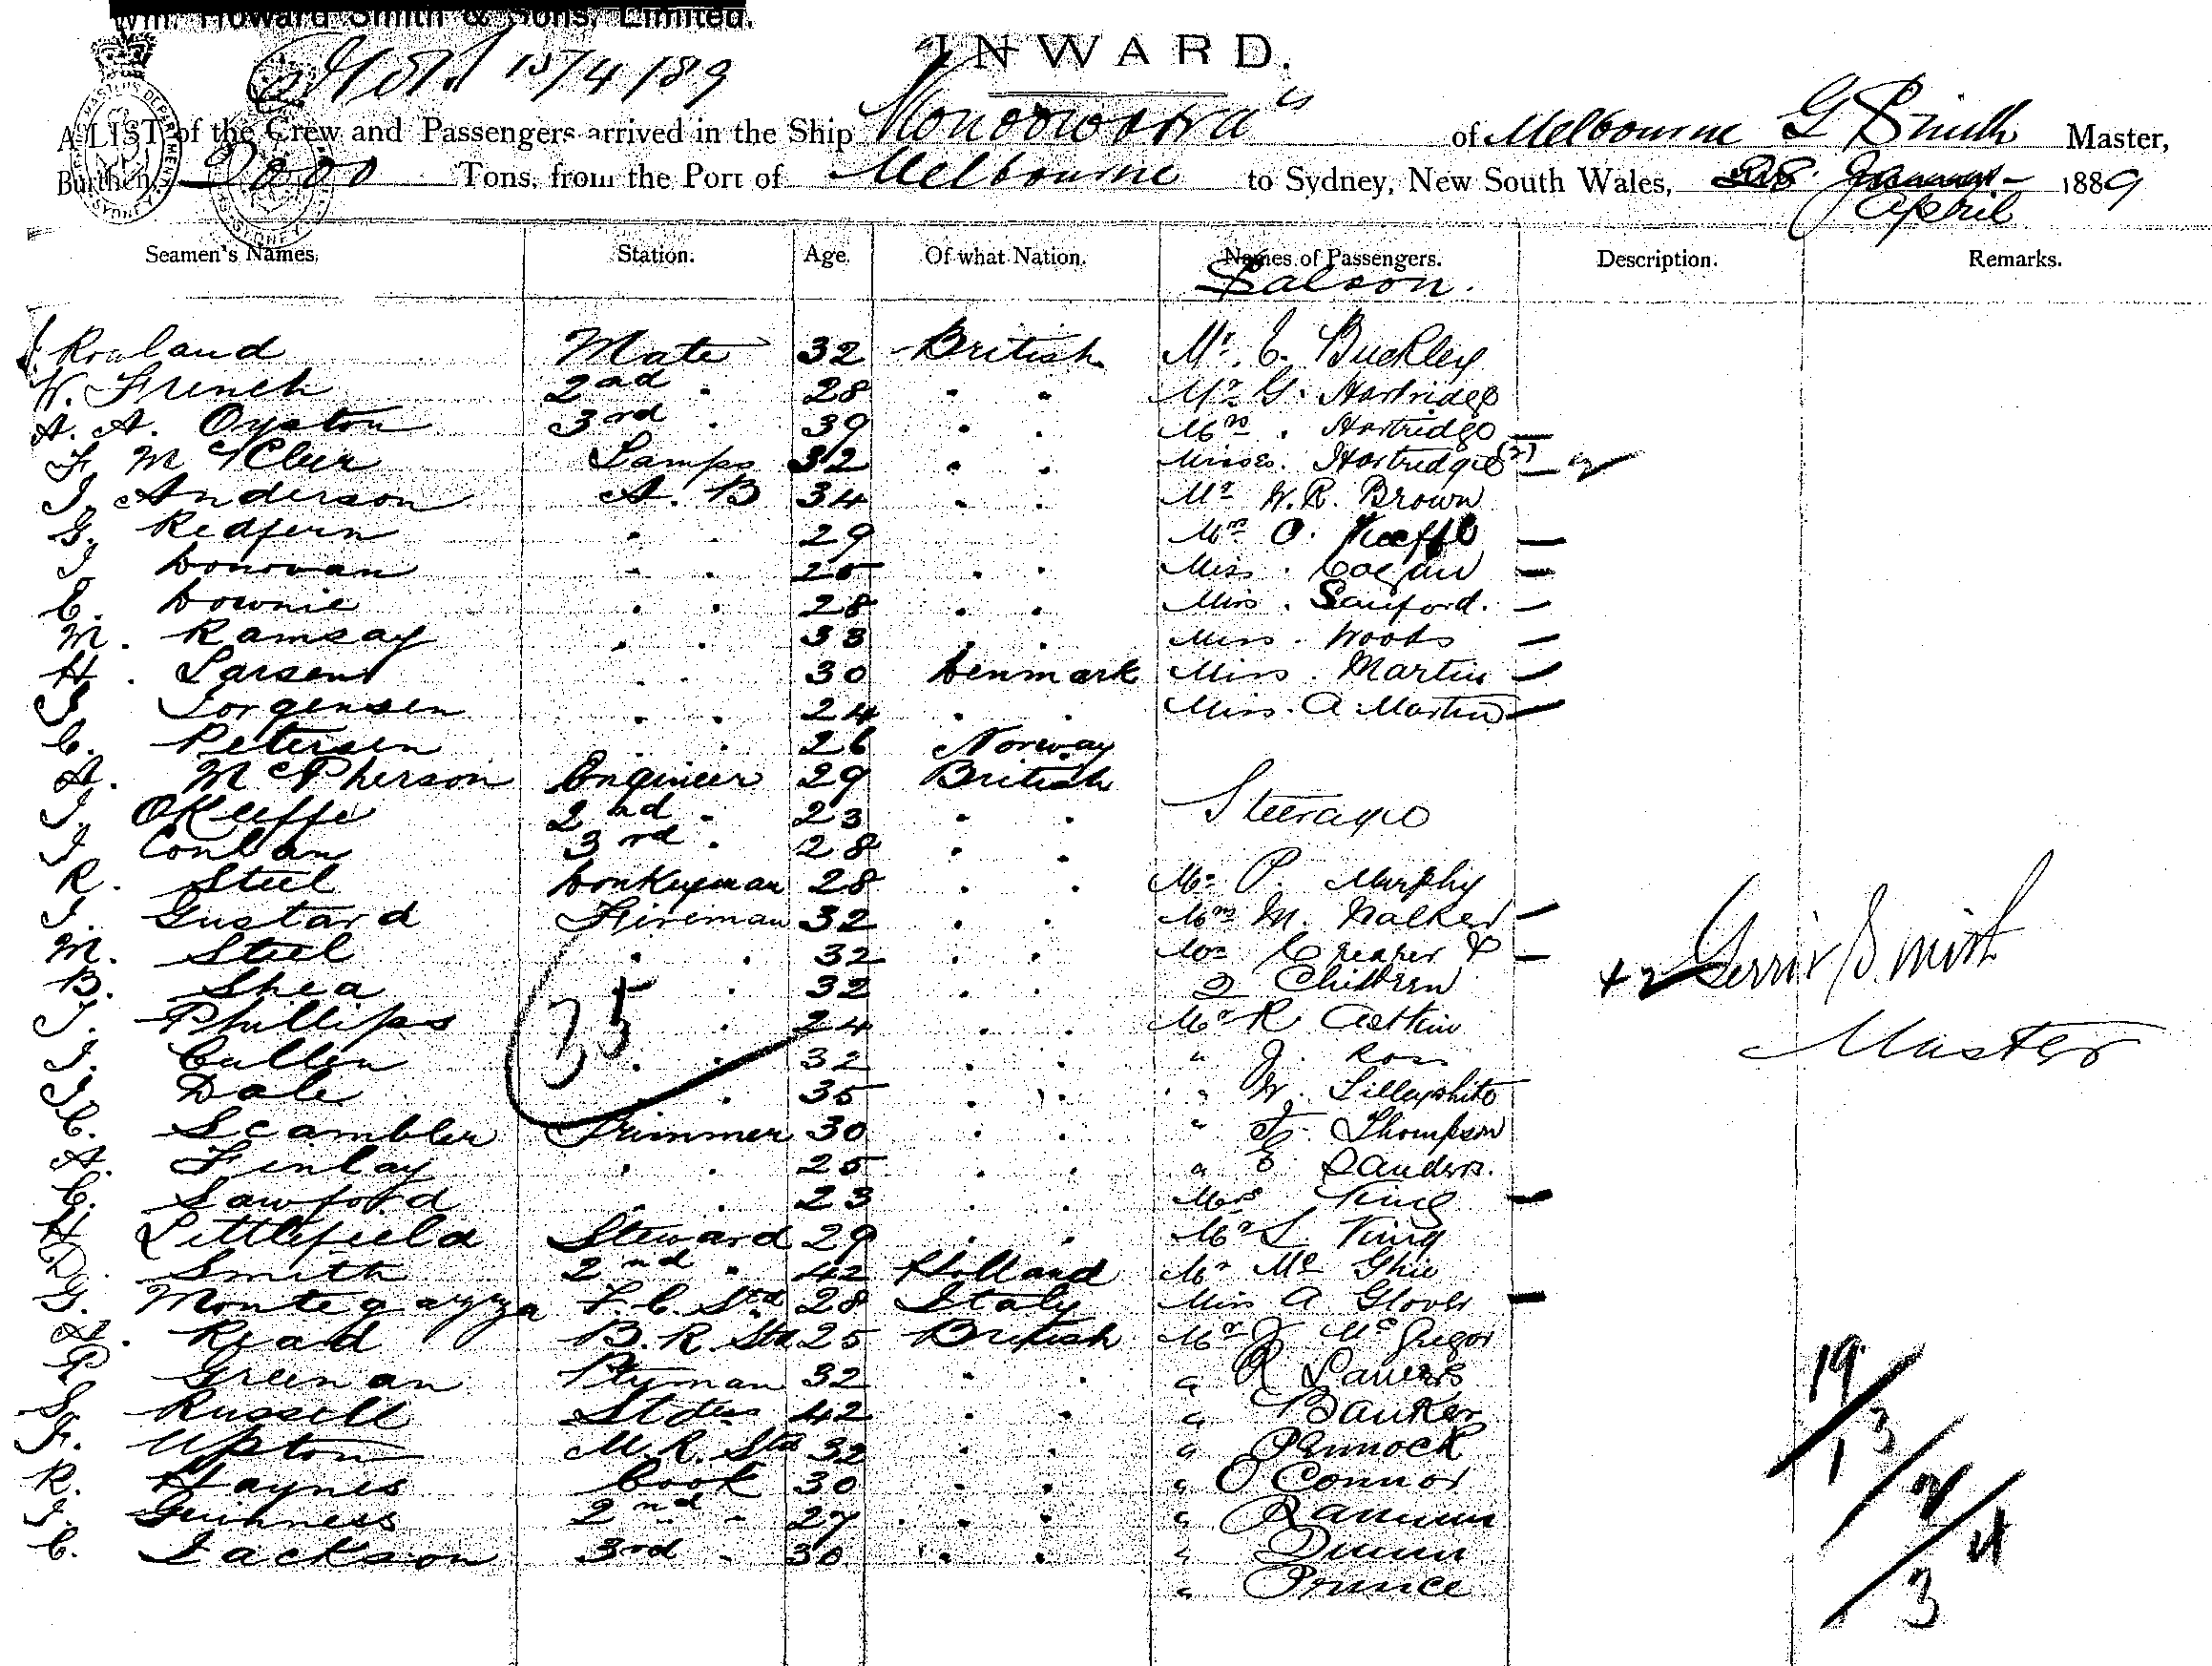 Wm. Howard Smith & Sons, Limited.
15/4/89
INWARD.
A LIST of the Crew and Passengers arrived in the Ship Konoowarra of Melbourne G Smith Master,
Burthen, 2000 Tons, from the Port of Melbourne to Sydney, New South Wales, April 1889
Seamen's Names, Station. Age Of what Nation. Names of Passengers. Description. Remarks.
Saloon.
J. Rowland Mate 32 British Mr. C. Buckley
W. French 2nd " 28 " " Mr G. Hartridge
A. A. Oyston 3rd " 39 " " Mrs . Hartridge —
F. McCleer Lamps 32 " " Misses. Hartridge (2) — 2
J. Anderson A. B 34 " " Mr W. R. Brown
G. Redfern " 29 Mrs O. Keeffe —
J Donovan " " 25 " " Miss . Cogan —
C. Downie " " 28 " " Miss . Sanford. —
M. Ramsay " " 33 " " Miss . Woods —
H. Larsen " " 30 Denmark Miss . Martin —
J. Jorgensen " " 24 " " Miss. A Martin —
C. Petersen " " 26 Norway
A. McPherson Engineer 29 British
J. OKeeffe 2nd " 23 " " Steerage
J Conlan 3rd " 28 " "
R. Steel Donkeyman 28 " " Mr P. Murphy
J. Gustard Fireman 32 " " Mrs M. Walker —
M. Steel " " 32 " " Mrs Creaper & —
B. Shea " " 32 " " 2 Children +2 Gerrir Smith
J. Phillips " 24 " " Mr R Astkin
35
J. Cullen " " 32 " " " J. Ross Master
J. Dale " 35 " " " W. Lillywhite
C. Scambler Trimmer 30 " " " F. Thompson
A. Finlay " " 25 " " " E. Sanders.
C. Sawford " " 23 " " Mrs King —
H Littlefield Steward 29 " " Mr L. King
D. Smith 2nd " 42 Holland Mr Mc Ghie
G. Montegazza F. C. Std 28 Italy Miss A Glover —
A. Read B. R. Std 25 British Mr J McGregor
P Greenan Ptyman 32 " " " R Lawers
S Russell Stdess 42 " " " Banker
F. Upton M. R. Std 32 " " " Pennock
R. Haynes Cook 30 " " " O Connor
J. Guinness 2nd " 27 " " "
C. Jackson 3rd " 30 " " " Dunn
" Prince
19/1
3/
2/3
4